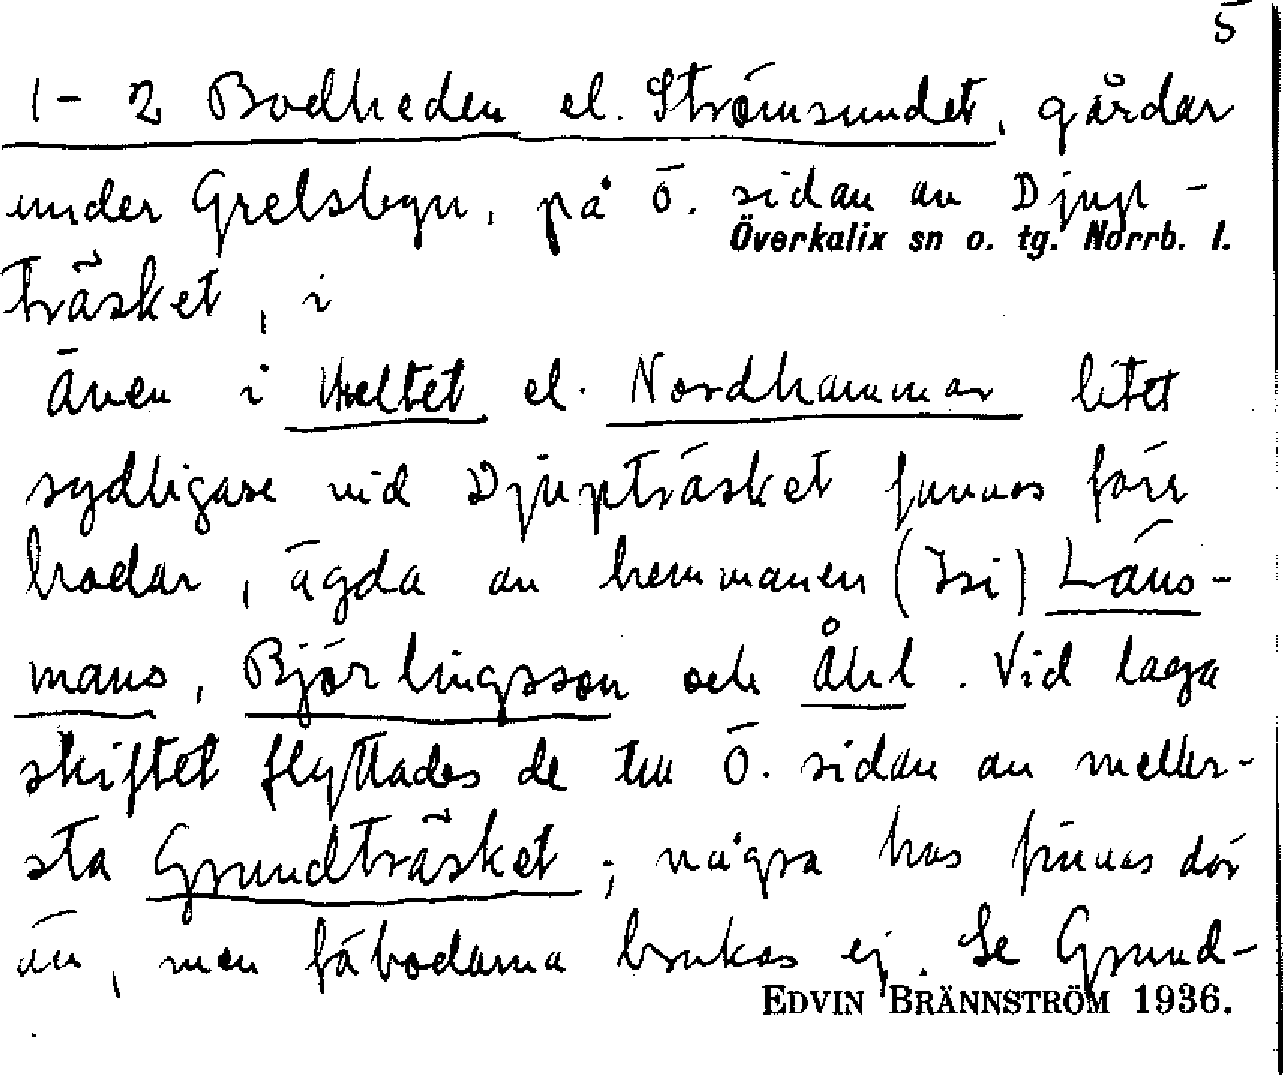 5
1-2 Bodheden el. Strömsundet, gårdar
under Grelsbyn, på ö. sidan av Djup-
Överkalix sn o. tg. Norrb. l.
träsket, i
Även i el. Nordhammar litet
sydligare vid Djupträsket funnos förr
bodar, ägda av hemmanen (Isi) Läns-
mans, Björlingsson och Åhl. Vid laga
skiftet flyttades de till ö. sidan av meller-
sta Grundträsket; några hus finnas där
än, men fäbodarna brukas ej. Se Grund-
EDVIN BRÄNNSTRÖM 1936.